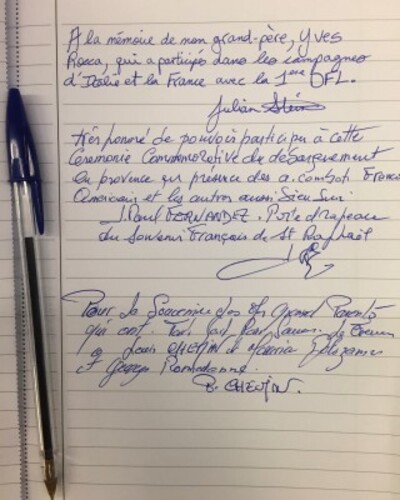 A la mémoire de mon grand-père, Yves
Rocca, qui a participés dans les campagnes
d'Italie et la France avec la 1ère DFL.
Julian
très honoré de pouvoir participer à cette
Cérémonie Commémorative du débarquement
en provence en présence des a. combatt. France
Américain et les autres aussi
J. Paul FERNANDEZ. Porte drapeau
du Souvenir Français de St Raphaël
Pour la des Grand Parents
qui ont Tout fait Pour
a Louis CHEVJIN et
et Georges
B. CHEVJIN.